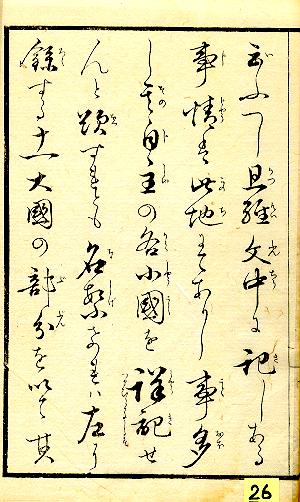 云ふべし且文中に記しある
事情は此地にてありし事多
し其自主の各小國を詳記せ
んと欲すれとも名繁けれハ左に
錄する十一大國の部分を以て其
26